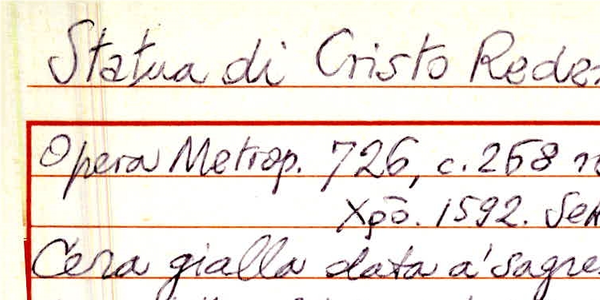 Statua di Cristo Reden
Opera Metrop. 726, c. 268
Xpō. 1592.
Cera gialla data a' sagre